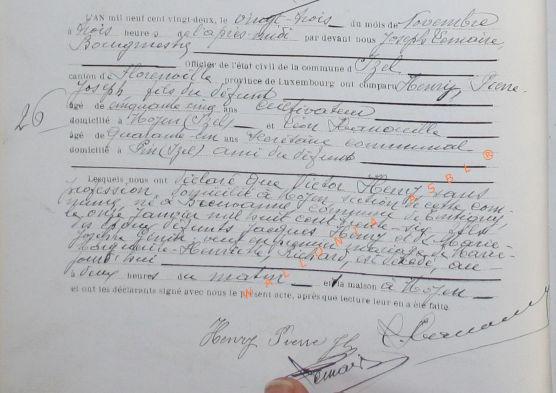 L'AN mil neuf cent vingt-deux, le vingt-trois du mois de Novembre
à trois heures de l'après-midi par devant nous Joseph Lemaire,
Bourgmestre
Officier de l'état civil de la commune d'Izel
canton de Florenville, province de Luxembourg ont comparu Henry, Pierre
Joseph, fils du défunt
26
âgé de cinquante cinq ans Cultivateur
domicilié à Moyen (Izel) et Léon
âgé de Quarante-un ans Secrétaire communal
domicilié à Pin (Izel) ami du défunt
Lesquels nous ont déclaré que Victor Henry sans
profession, domicilié à Moyen section de cette com-
mune, né à commune de
le onze Janvier mil huit cent trente-six, fils
des défunts Jacques Henry et de Marie-
Josèphe veuf en mariage de Marie-
Marguerite-Henriette Richard, est décédé, au-
jourd'hui
à deux heures du matin en la maison à Moyen
et ont les déclarants signé avec nous le présent acte, après que lecture leur en a été faite.
Henry Pierre
Lemaire
WALLONIA ASBL ®